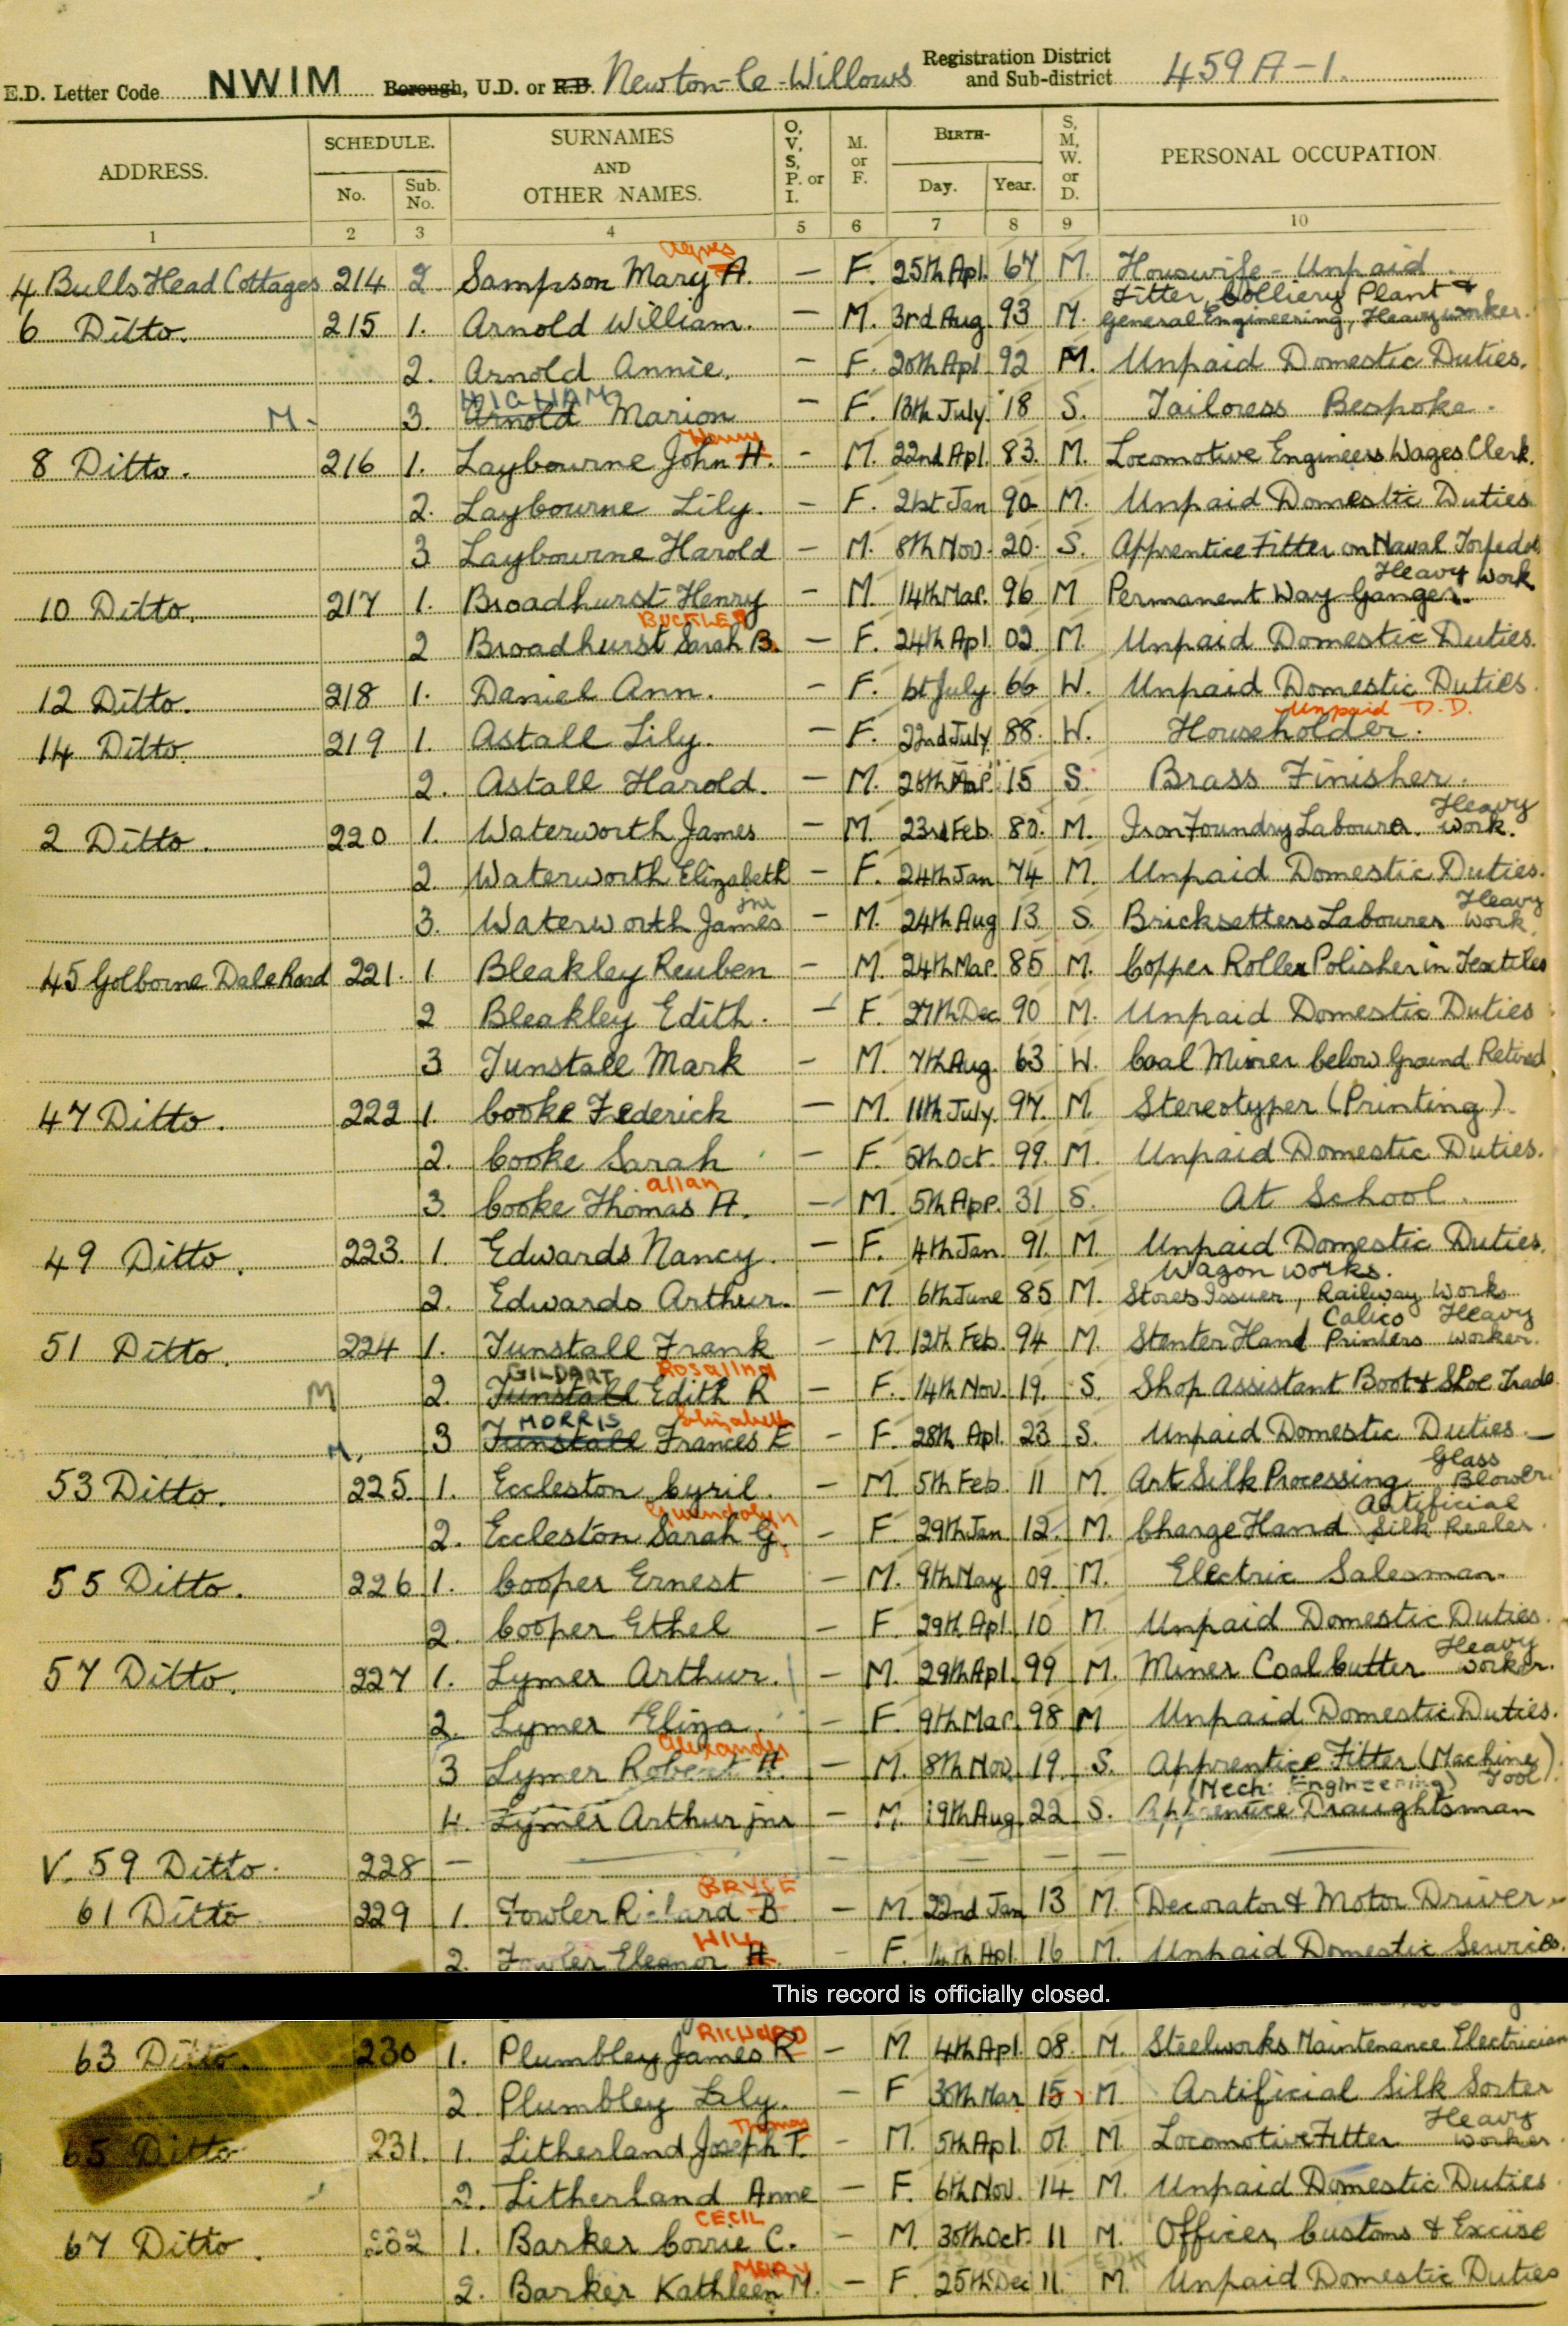 E.D. Letter Code NWIM Borough, U.D. or R.D. Newton-le-Willows Registration District and Sub-district 459A-1.
ADDRESS. SCHEDULE. No. Sub. No. SURNAMES AND OTHER NAMES. O, V, S, P. or I. M. or F. BIRTH- Day. Year. S, M, W. or D. PERSONAL OCCUPATION
1 2 3 4 5 6 7 8 9 10
Agnes
4 Bulls Head Cottages 214 2 Sampson Mary A. — F. 25th Apl. 67 M. Housewife - Unpaid
Fitter, Colliery Plant &
6 Ditto. 215 1. Arnold William. — M. 3rd Aug. 93 M. General Engineering, Heavy worker.
2. Arnold Annie. — F. 20th Apl. 92 M. Unpaid Domestic Duties.
HIGHAM
M- 3. Arnold Marion — F. 13th July. 18 S. Tailoress Bespoke.
Henry
8 Ditto. 216 1. Laybourne John H. — M. 22nd Apl. 83. M. Locomotive Engineers Wages Clerk.
2. Laybourne Lily. — F. 21st Jan 90 M. Unpaid Domestic Duties
3 Laybourne Harold — M. 8th Nov. 20. S. Apprentice Fitter on Naval Torpedoes
Heavy Work
10 Ditto. 217 1. Broadhurst Henry — M. 14th Mar. 96 M Permanent Way Ganger.
BUCKLEY
2 Broadhurst Sarah B. — F. 24th Apl. 02. M. Unpaid Domestic Duties.
12 Ditto. 218 1. Daniel Ann. — F. 1st July. 66 W. Unpaid Domestic Duties
Unpaid D.D.
14 Ditto. 219 1. Astall Lily. — F. 22nd July 88. W. Householder.
2. Astall Harold. — M. 26th 15 S. Brass Finisher.
Heavy
2 Ditto. 220 1. Waterworth James — M. 23rd Feb. 80. M. Iron Foundry Labourer. Work.
2. Waterworth Elizabeth — F. 24th Jan 74 M. Unpaid Domestic Duties.
jnr Heavy
3. Waterworth James — M. 24th Aug 13 S. Bricksetters Labourer Work
45 Golborne Dale Road 221. 1 Bleakley Reuben — M. 24th Mar. 85 M. Copper Roller Polisher in Textiles
2 Bleakley Edith. — F. 27th Dec 90 M. Unpaid Domestic Duties
3 Tunstall Mark — M. 7th Aug. 63 W. Coal Miner below Ground Retired
47 Ditto. 222 1. Cooke Federick — M. 11th July. 97. M. Stereotyper (Printing).
2. Cooke Sarah — F. 5th Oct. 99. M. Unpaid Domestic Duties.
allan
3. Cooke Thomas A. — M. 5th Apr. 31 S. At School.
49 Ditto. 223. 1. Edwards Nancy. — F. 4th Jan. 91. M. Unpaid Domestic Duties.
Wagon works.
2. Edwards Arthur. — M. 6th June 85 M. Stores Issuer, Railway Works
Calico Heavy
51 Ditto. 224 1. Tunstall Frank — M. 12th Feb. 94 M. Stenter Hand Printers Worker.
GILDART Rosalind
M 2. Tunstall Edith R — F. 14th Nov. 19. S. Shop Assistant Boot & Shoe Trade
MORRIS Elizabeth
M. 3 Tunstall Frances E — F. 28th Apl. 23 S. Unpaid Domestic Duties —
Glass
53 Ditto. 225. 1. Eccleston Cyril. — M. 5th Feb. 11 M. Art Silk Processing Blower
Gwendolyn Artificial
2. Eccleston Sarah G. — F. 29th Jan. 12. M. Charge Hand Silk Reeler.
55 Ditto. 226 1. Cooper Ernest — M. 9th May 09. M. Electric Salesman.
2. Cooper Ethel — F. 29th Apl. 10 M. Unpaid Domestic Duties.
Heavy
57 Ditto. 227 1. Lymer Arthur. — M. 29th Apl. 99 M. Miner Coal Cutter worker.
2. Lymer Eliza. — F. 9th Mar. 98 M Unpaid Domestic Duties.
Alexander
3 Lymer Robert A. — M. 8th Nov. 19. S. Apprentice Fitter (Machine Tool)
(Mech: Engineering)
4. Lymer Arthur jnr — M. 19th Aug. 22 S. Apprentice Draughtsman
V. 59 Ditto. 228 — — — — — —
BRYCE
61 Ditto 229 1. Fowler Richard B. — M. 22nd Jan 13 M. Decorator & Motor Driver
2. Fowler Eleanor H. — F. 14th Apl. 16 M. Unpaid Domestic Services.
This record is officially closed.
RICHARD
63 Ditto. 230 1. Plumbley James R — M. 4th Apl. 08. M. Steelworks Maintenance Electrician
2. Plumbley Lily. — F 30th Mar 15 M Artificial Silk Sorter
Thomas Heavy
65 Ditto 231. 1. Litherland Joseph T. — M. 5th Apl. 07. M. Locomotive Fitter Worker
2. Litherland Anne — F. 6th Nov. 14. M. Unpaid Domestic Duties
CECIL
67 Ditto. 232 1. Barker Corrie C. — M. 30th Oct. 11 M. Officer, Customs & Excise
MARY
2. Barker Kathleen M. — F. 25th Dec 11. M. Unpaid Domestic Duties